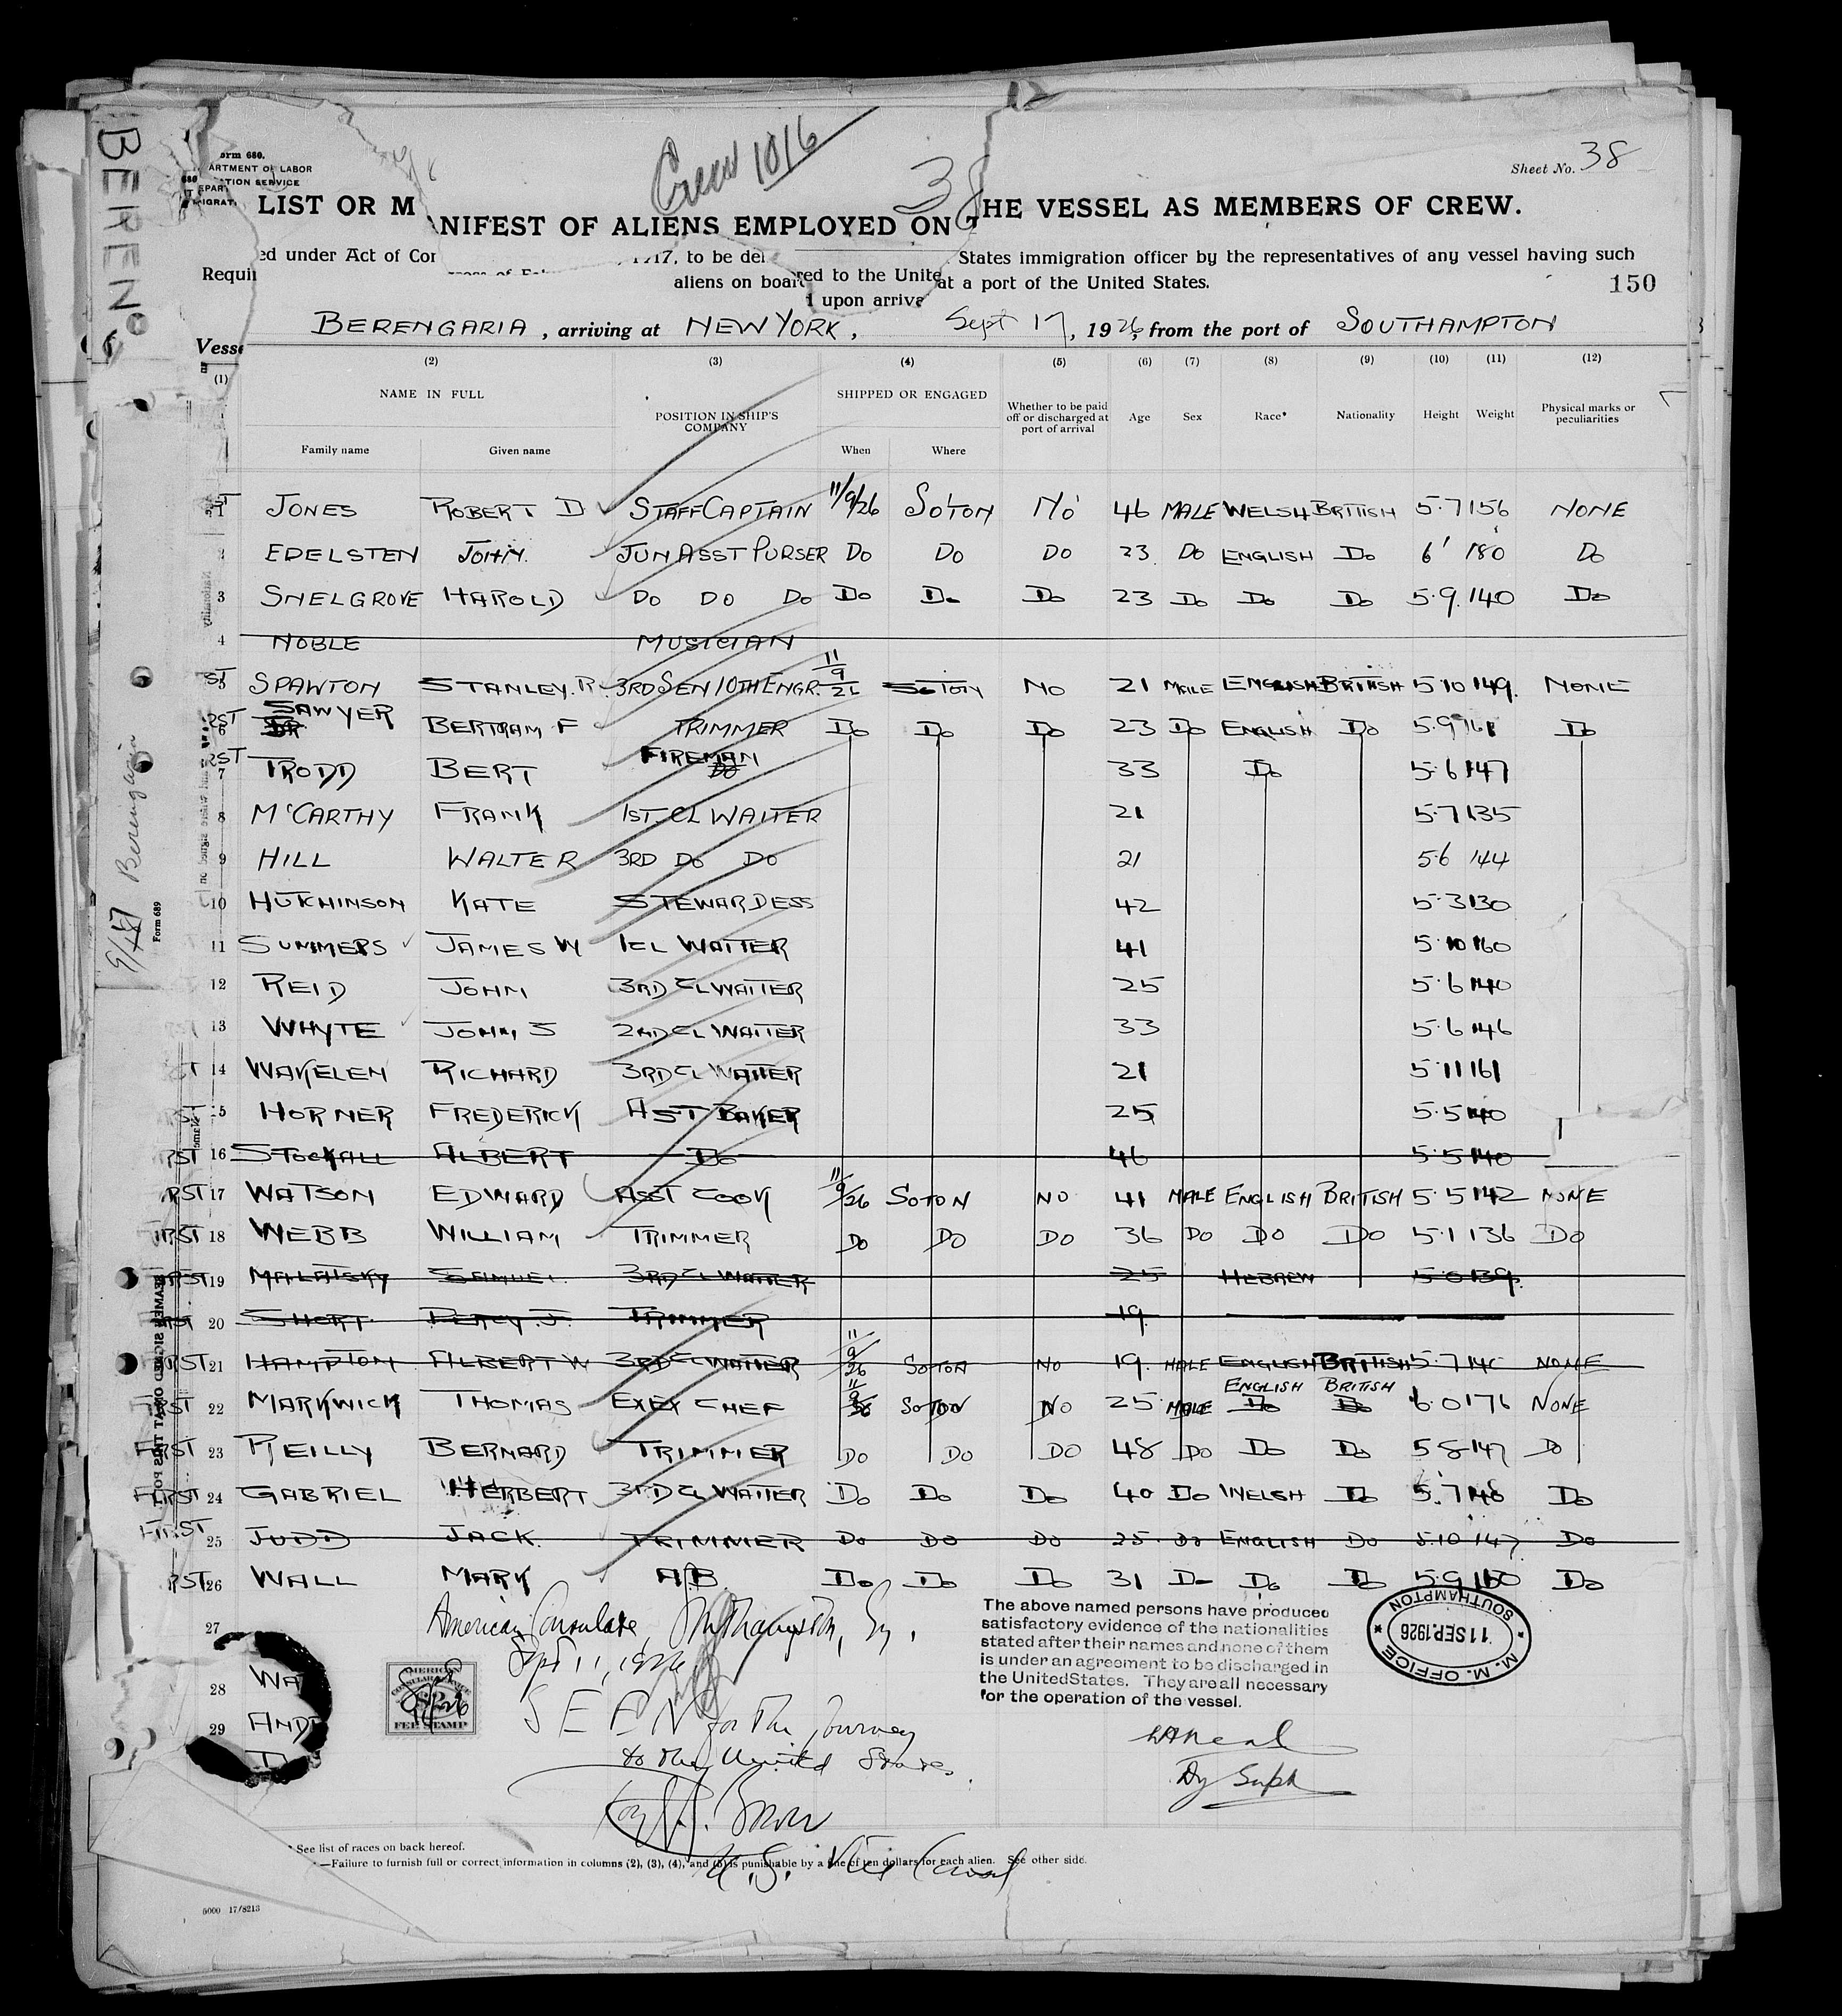 12
BERENG
Crew 1016
38
Sheet No. 38
orm 680.
ARTMENT OF LABOR
TION SERVICE
LIST OR M
NIFEST OF ALIENS EMPLOYED ON T
HE VESSEL AS MEMBERS OF CREW.
ed under Act of Cor
1917, to be del
States immigration officer by the representatives of any vessel having such
Requi
aliens on board
red to the Unite
at a port of the United States.
150
upon arriva
Vesse
BERENGARIA, arriving at NEW YORK, Sept 17, 1926, from the port of SOUTHAMPTON
(1) (2) (3) (4) (5) (6) (7) (8) (9) (10) (11) (12)
NAME IN FULL
POSITION IN SHIP'S COMPANY
SHIPPED OR ENGAGED
Whether to be paid off or discharged at port of arrival
Age Sex Race* Nationality Height Weight
Physical marks or peculiarities
Family name Given name When Where
ST 1 JONES ROBERT D STAFF CAPTAIN 11/9/26 SO'TON NO 46 MALE WELSH BRITISH 5.7 156 NONE
2 EDELSTEN JOHN. JUN ASST PURSER DO DO DO 23 DO ENGLISH DO 6' 180 DO
3 SNELGROVE HAROLD DO DO DO DO DO DO 23 DO DO DO 5.9. 140 DO
4 NOBLE MUSICIAN
ST 5 SPAWTON STANLEY.R. 3RD SEN 10TH ENGR. 11/9/26 SOTON NO 21 MALE ENGLISH BRITISH 5.10 149. NONE
RST 6 SAWYER BERTRAM F TRIMMER DO DO DO 23 DO ENGLISH DO 5.9 161 DO
RST 7 TRODD BERT FIREMAN DO 33 DO 5.6 147
8 McCARTHY FRANK 1ST CL WAITER 21 5.7 135
9 HILL WALTER 3RD DO DO 21 5.6 144
10 HUTCHINSON KATE STEWARDESS 42 5.3 130
11 SUMMERS JAMES W 1CL WAITER 41 5.10 160
12 REID JOHN 3RD CL WAITER 25 5.6 140
13 WHYTE JOHN S 2ND CL WAITER 33 5.6 146
ST 14 WAKELEN RICHARD 3RD CL WAITER 21 5.11 161
ST 15 HORNER FREDERICK AST BAKER 25 5.5 140
RST 16 STOCKALL ALBERT DO 46 5.5 140
RST 17 WATSON EDWARD ASST COOK 11/9/26 SOTON NO 41 MALE ENGLISH BRITISH 5.5 142 NONE
IRST 18 WEBB WILLIAM TRIMMER DO DO DO 36 DO DO DO 5.1 136 DO
RST 19 MALATSKY SAMUEL 3RD CL WAITER 25 HEBREW 5.0 139.
20 SHORT PERCY.J. TRIMMER 19
RST 21 HAMPTON ALBERT W 3RD CL WAITER 11/9/26 SOTON NO 19. MALE ENGLISH BRITISH 5.7 NONE
FIRST 22 MARKWICK THOMAS EXEX CHEF 11/9/26 SOTON NO 25 MALE ENGLISH BRITISH 6.0 176 NONE
FIRST 23 REILLY BERNARD TRIMMER DO DO DO 48 DO DO DO 5.8 147 DO
FIRST 24 GABRIEL HERBERT 3RD CL WAITER DO DO DO 40 DO WELSH DO 5.7 148 DO
FIRST 25 JUDD JACK TRIMMER DO DO DO 25 DO ENGLISH DO 5.10 147 DO
RST 26 WALL MARK A.B. DO DO DO 31 DO DO DO 5.9 160 DO
27
28 WA
29 AND
American Consulate, Southampton, Eng.
Sept 11, 1926
SEEN for the journey
to the United States.
U.S. Vice Consul
AMERICAN
CONSULAR SERVICE
$2
FEE STAMP
The above named persons have produced
satisfactory evidence of the nationalities
stated after their names and none of them
is under an agreement to be discharged in
the United States. They are all necessary
for the operation of the vessel.
Dy Supt
M. M. OFFICE
11 SEP. 1926
SOUTHAMPTON
Berengaria
Form 689
* See list of races on back hereof.
—Failure to furnish full or correct information in columns (2), (3), (4), and (5) is punishable by a fine of ten dollars for each alien. See other side.
5000 17/8213